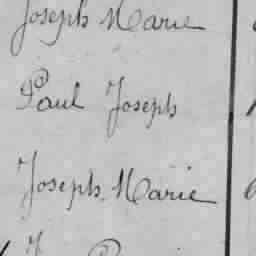 Joseph Marie
Paul Joseph
Joseph Marie